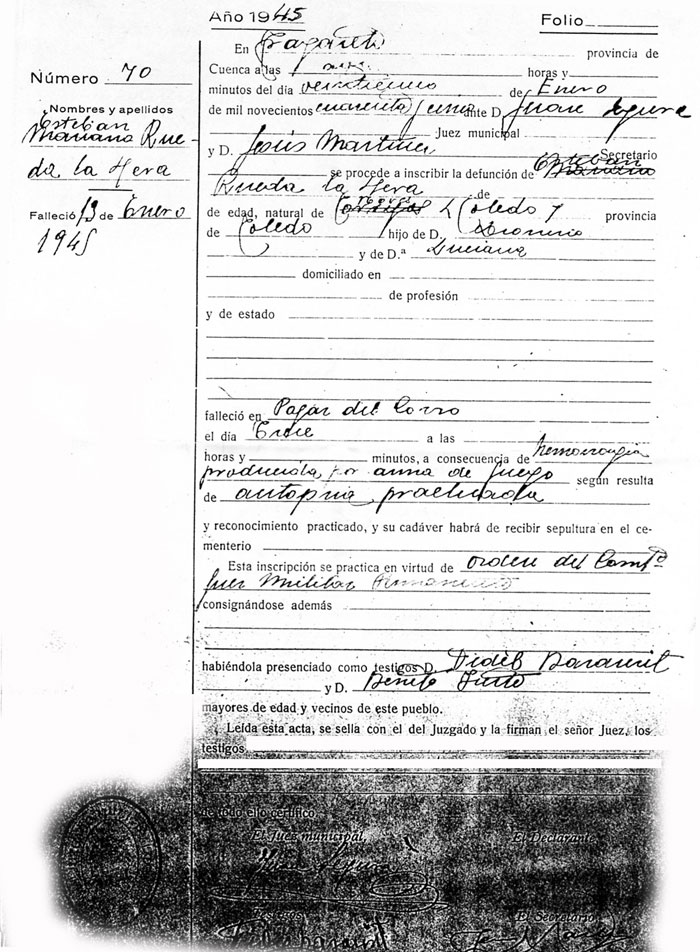 Año 1945 Folio
Número 70
Nombres y apellidos
Esteban
Mariano Rue-
da la Hera
Falleció 13 de Enero
1945
En provincia de
Cuenca a las horas y
minutos del día veintiuno de Enero
de mil novecientos cuarenta y cinco ante D. Juan
Juez municipal
y D. Jesús Martínez Secretario
se procede a inscribir la defunción de Esteban
Rueda la Hera de
de edad, natural de Toledo y provincia
de Toledo hijo de D. Dionisio
y de D.ª Luciana
domiciliado en
de profesión
y de estado
falleció en Pajar del Corro
el día Trece a las
horas y minutos, a consecuencia de hemorragia
producida por arma de fuego según resulta
de autopsia practicada
y reconocimiento practicado, y su cadáver habrá de recibir sepultura en el ce-
menterio
Esta inscripción se practica en virtud de orden del
Juez Militar
consignándose además
habiéndola presenciado como testigos D.
y D. Benito
mayores de edad y vecinos de este pueblo.
Leída esta acta, se sella con el del Juzgado y la firman el señor Juez, los
testigos
de todo ello certifico.
El Juez municipal, El Declarante
Testigos El Secretario